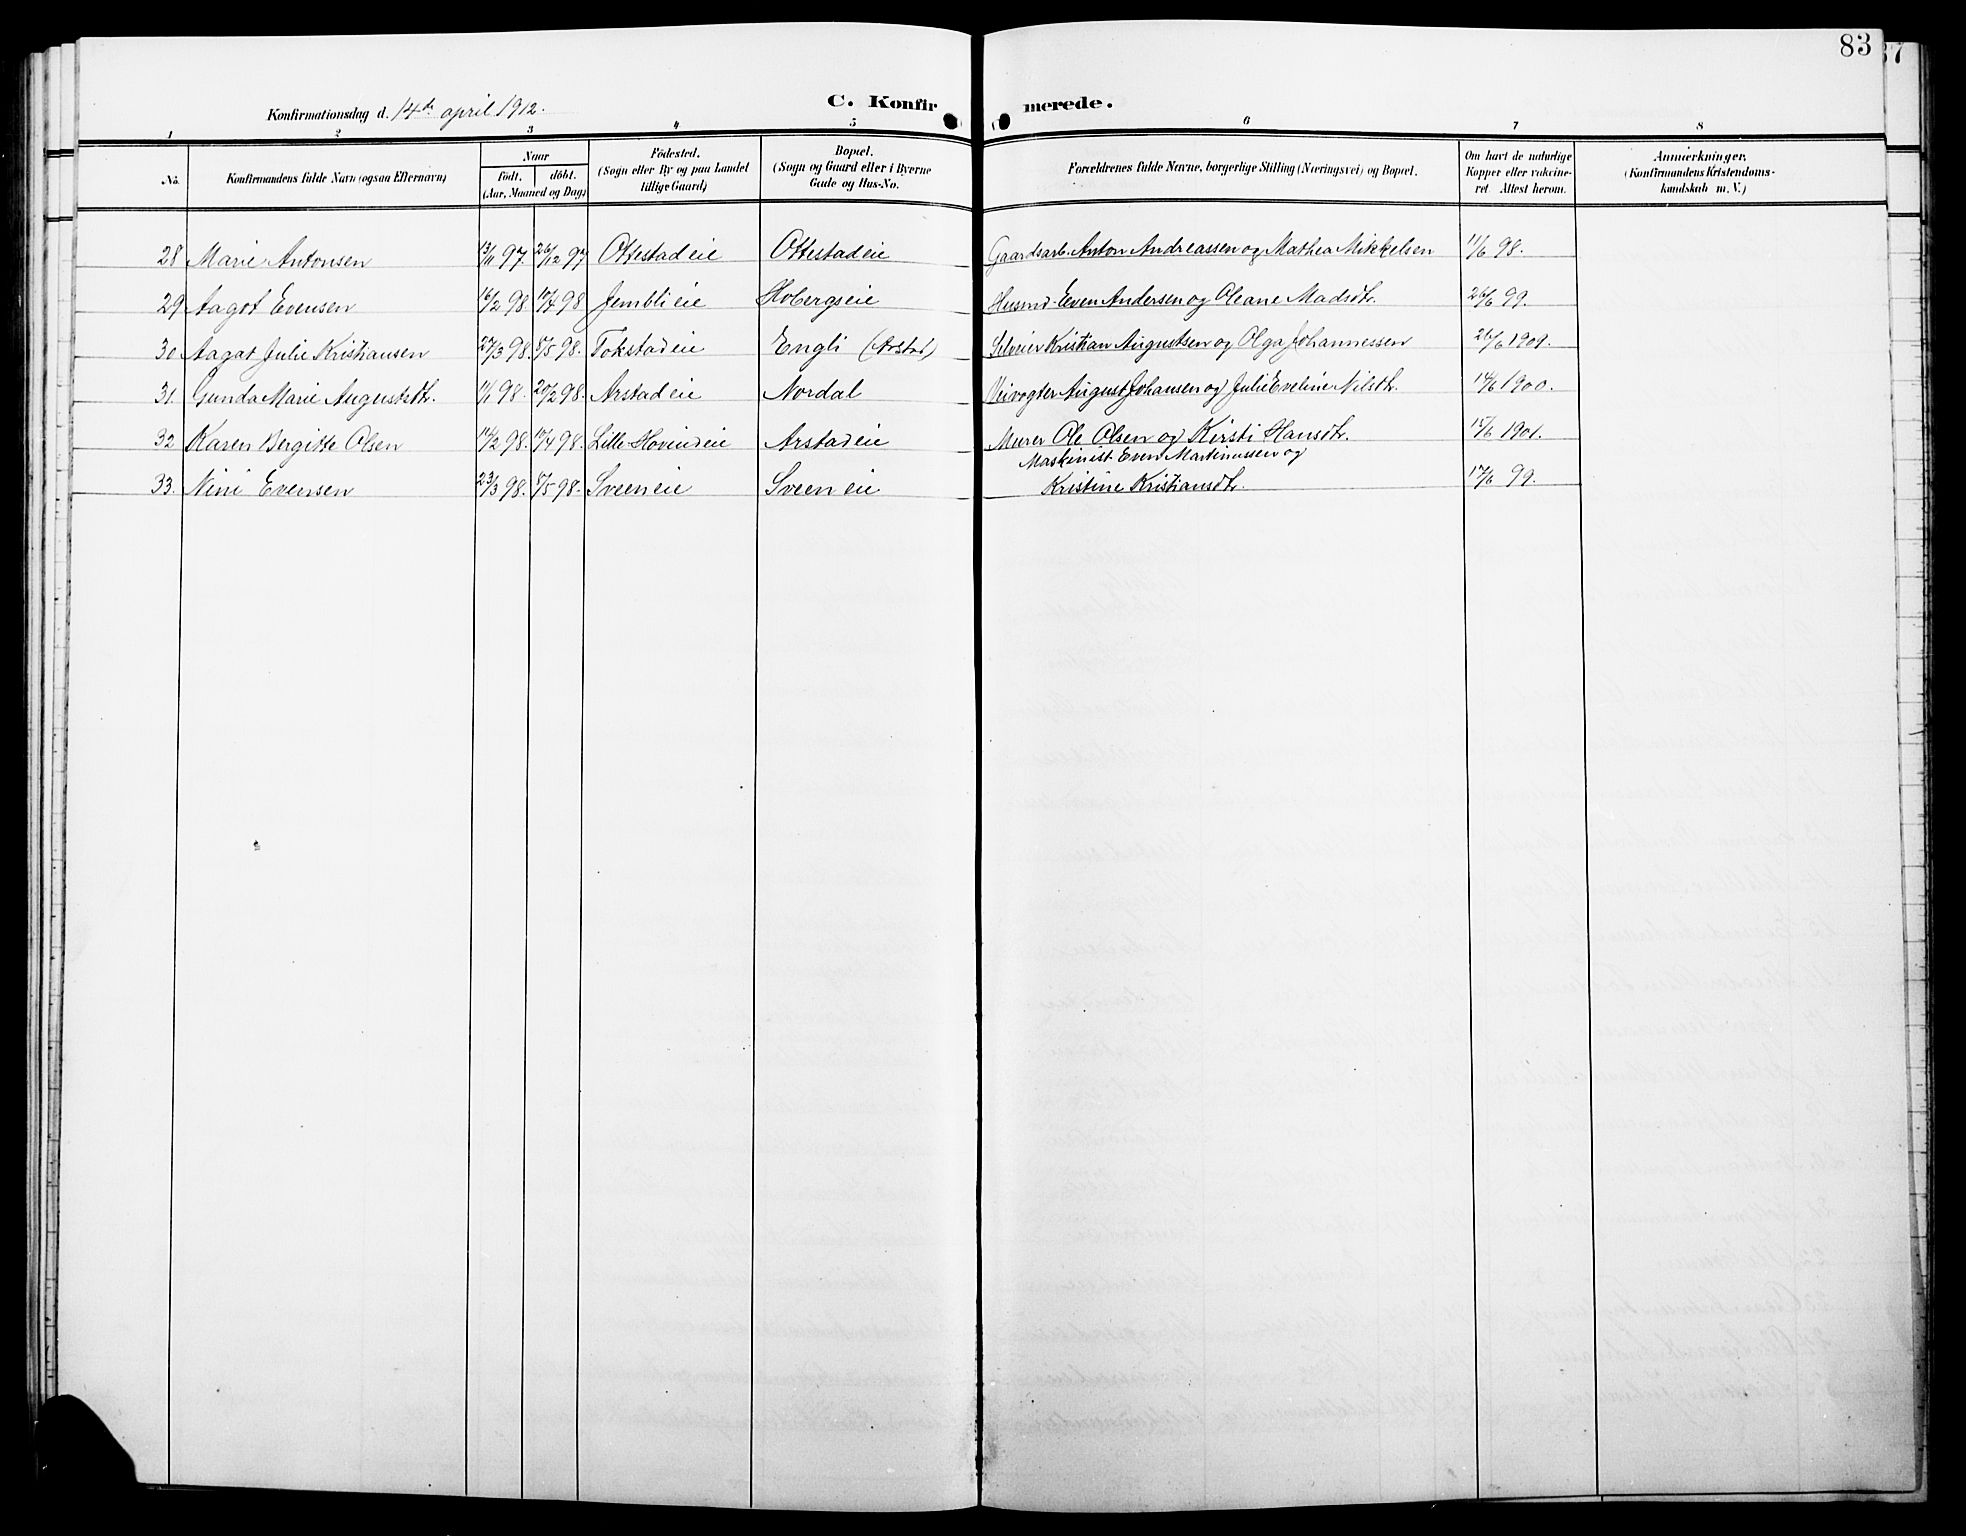 83
37
Konfirmationsdag d. 14de april 1912.
C. Konfirmerede.
1 2 3 4 5 6 7 8
No.
Konfirmandens fulde Navn (ogsaa Efternavn)
Naar
födt. döbt.
(Aar, Maaned og Dag)
Födested.
(Sogn eller By og paa Landet
tillige Gaard)
Bopæl.
(Sogn og Gaard eller i Byerne
Gade og Hus-No.
Forældrenes fulde Navne, borgerlige Stilling (Næringsvei) og Bopæl.
Om havt de naturlige
Kopper eller vakcine-
ret. Attest herom.
Anmærkninger.
(Konfirmandens Kristendoms-
kundskab m. V.)
28 Marie Antonsen 13/11 97. 26/12 97 Ottestadeie Ottestadeie Gaardsarb. Anton Andreassen og Mathea Mikkelsen 11/6 98.
29 Aagot Evensen 16/2 98 10/4 98 Jemblieie Hobergseie Husmd. Even Andersen og Oleane Madsdtr. 26/6 99.
30 Aagot Julie Kristiansen 27/3 98. 8/5 98. Tokstadeie Engli (Arstad) Selveier Kristian Augustsen og Olga Johannessen 26/6 1909.
31. Gunda Marie Augustsdtr. 11/1 98. 20/2 98. Arstadeie Nordal Veivogter August Johansen og Julie Eveline Nilsdtr. 14/6 1900.
32 Karen Bergitte Olsen 14/2 98. 17/4 98. Lille-Hovindeie Arstadeie Murer Ole Olsen og Kirsti Hansdtr. 15/6 1901.
33. Nini Evensen 23/3 98. 8/5 98. Sveeneie Sveeneie Maskinist Even Martinussen og
Kristine Kristiansdtr. 17/6 99.